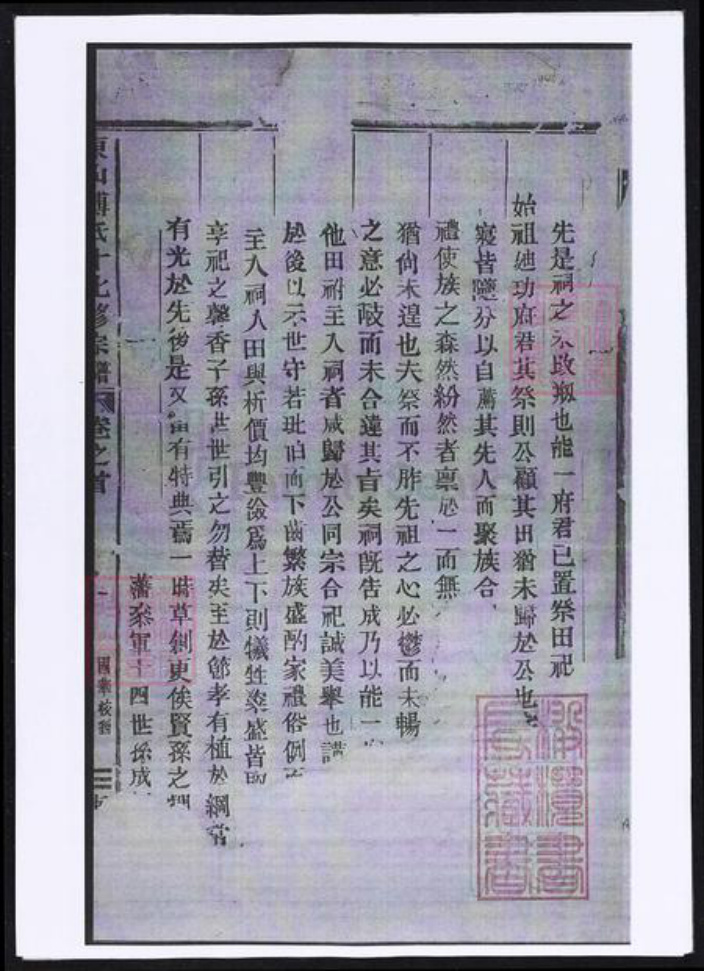 先是祠之未改刱也能一府君已置祭田祀
始祖廸功府君其祭則公顧其田猶未歸於公也
寢皆隨分以自薦其先人而聚族合
禮使族之森然紛然者稟於一而無
猶尙未遑也夫祭而不胙先祖之心必鬱而未暢
之意必歧而未合違其旨矣祠旣告成乃以能一
他田祔主入祠者咸歸於公同宗合祀誠美舉也
於後以示世守若玭伯而下齒繁族盛酌家禮俗例
主入祠入田與析價均豐儉爲上下則犧牲粢盛皆
享祀之馨香子孫世世引之勿替矣至於節孝有植於綱常
有光於先後是又當有特典焉一時草創更俟賢孫之
藩叅軍十四世孫成
東山傅氏十北修宗譜 卷之首
國華校刊